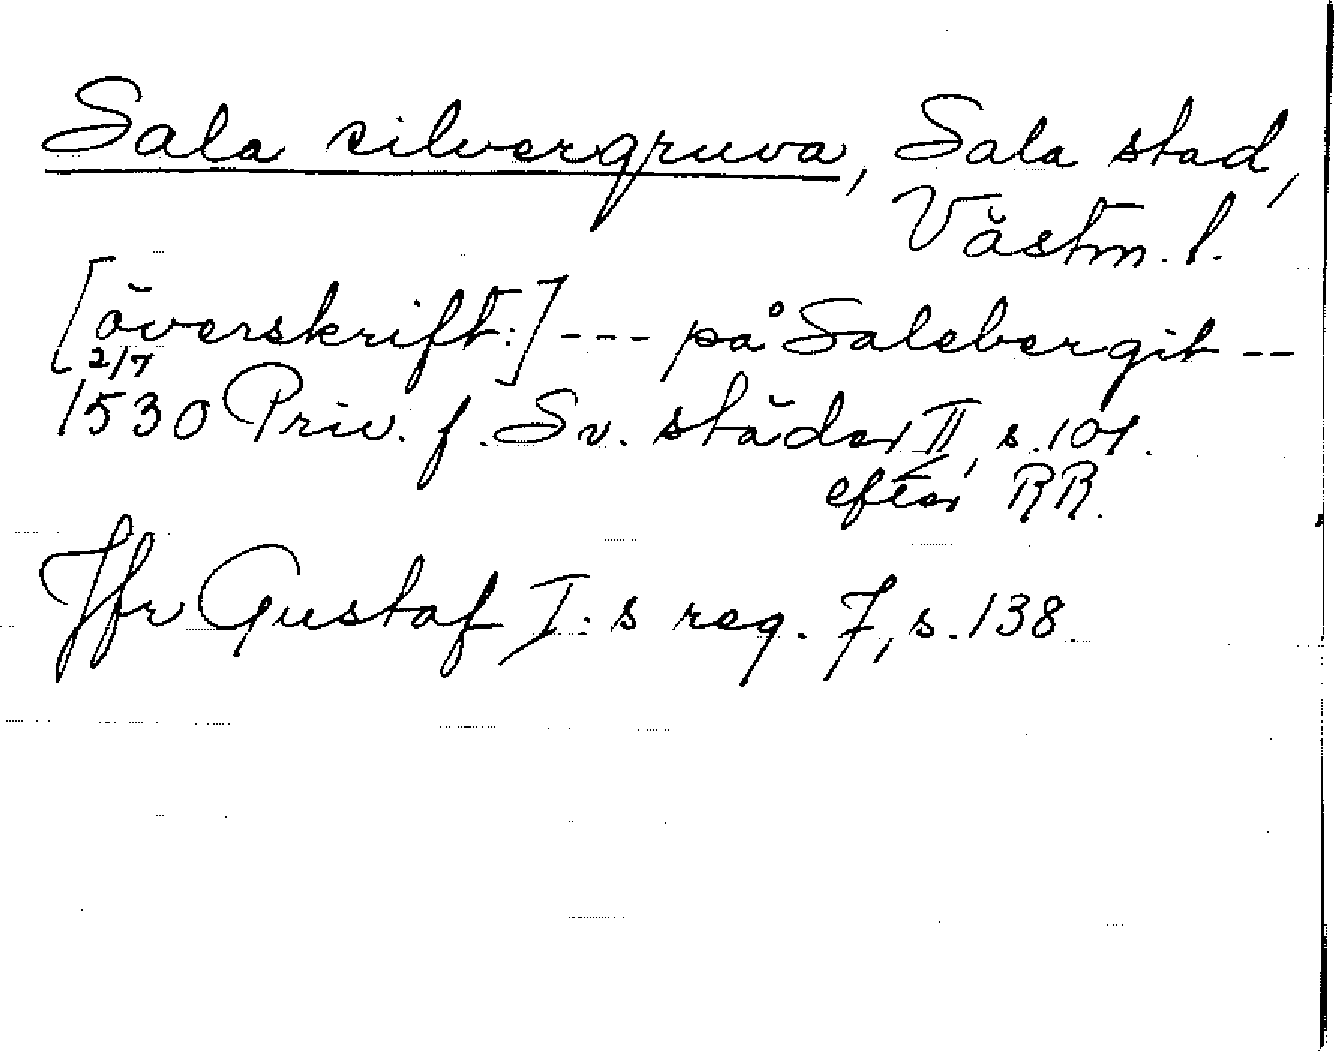 Sala silvergruva, Sala stad,
Västm. l.
[överskrift:] --- på Salebergit --
2/7
1530 Priv. f. Sv. städer II, s. 101.
efter RR.
Jfr Gustaf I:s reg. 7, s. 138.